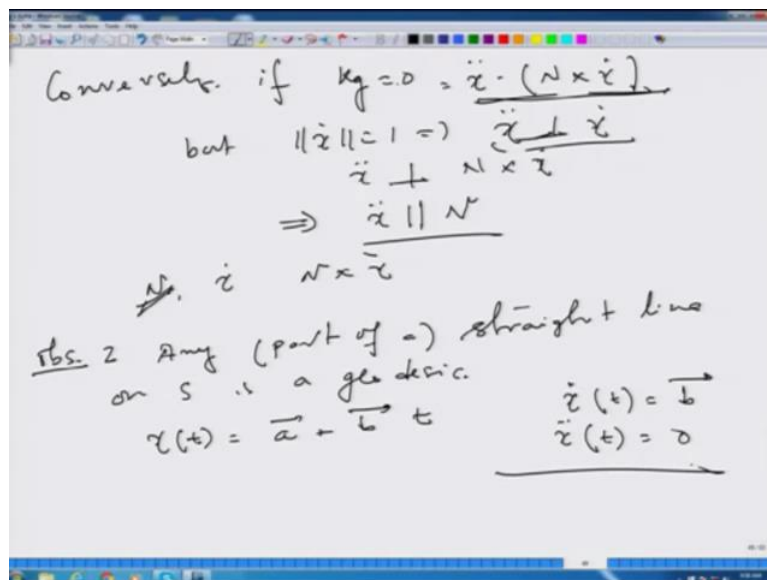 Conversely. if kg = 0 = ẍ · (N × ẋ)
but ||ẋ|| = 1 => ẍ ⊥ ẋ
ẍ ⊥ N × ẋ
⇒ ẍ || N
N, ẋ N × ẋ
Obs. 2 Any (part of a) straight line
on S is a geodesic.
x(t) = a⃗ + b⃗ t
ẋ(t) = b⃗
ẍ(t) = 0